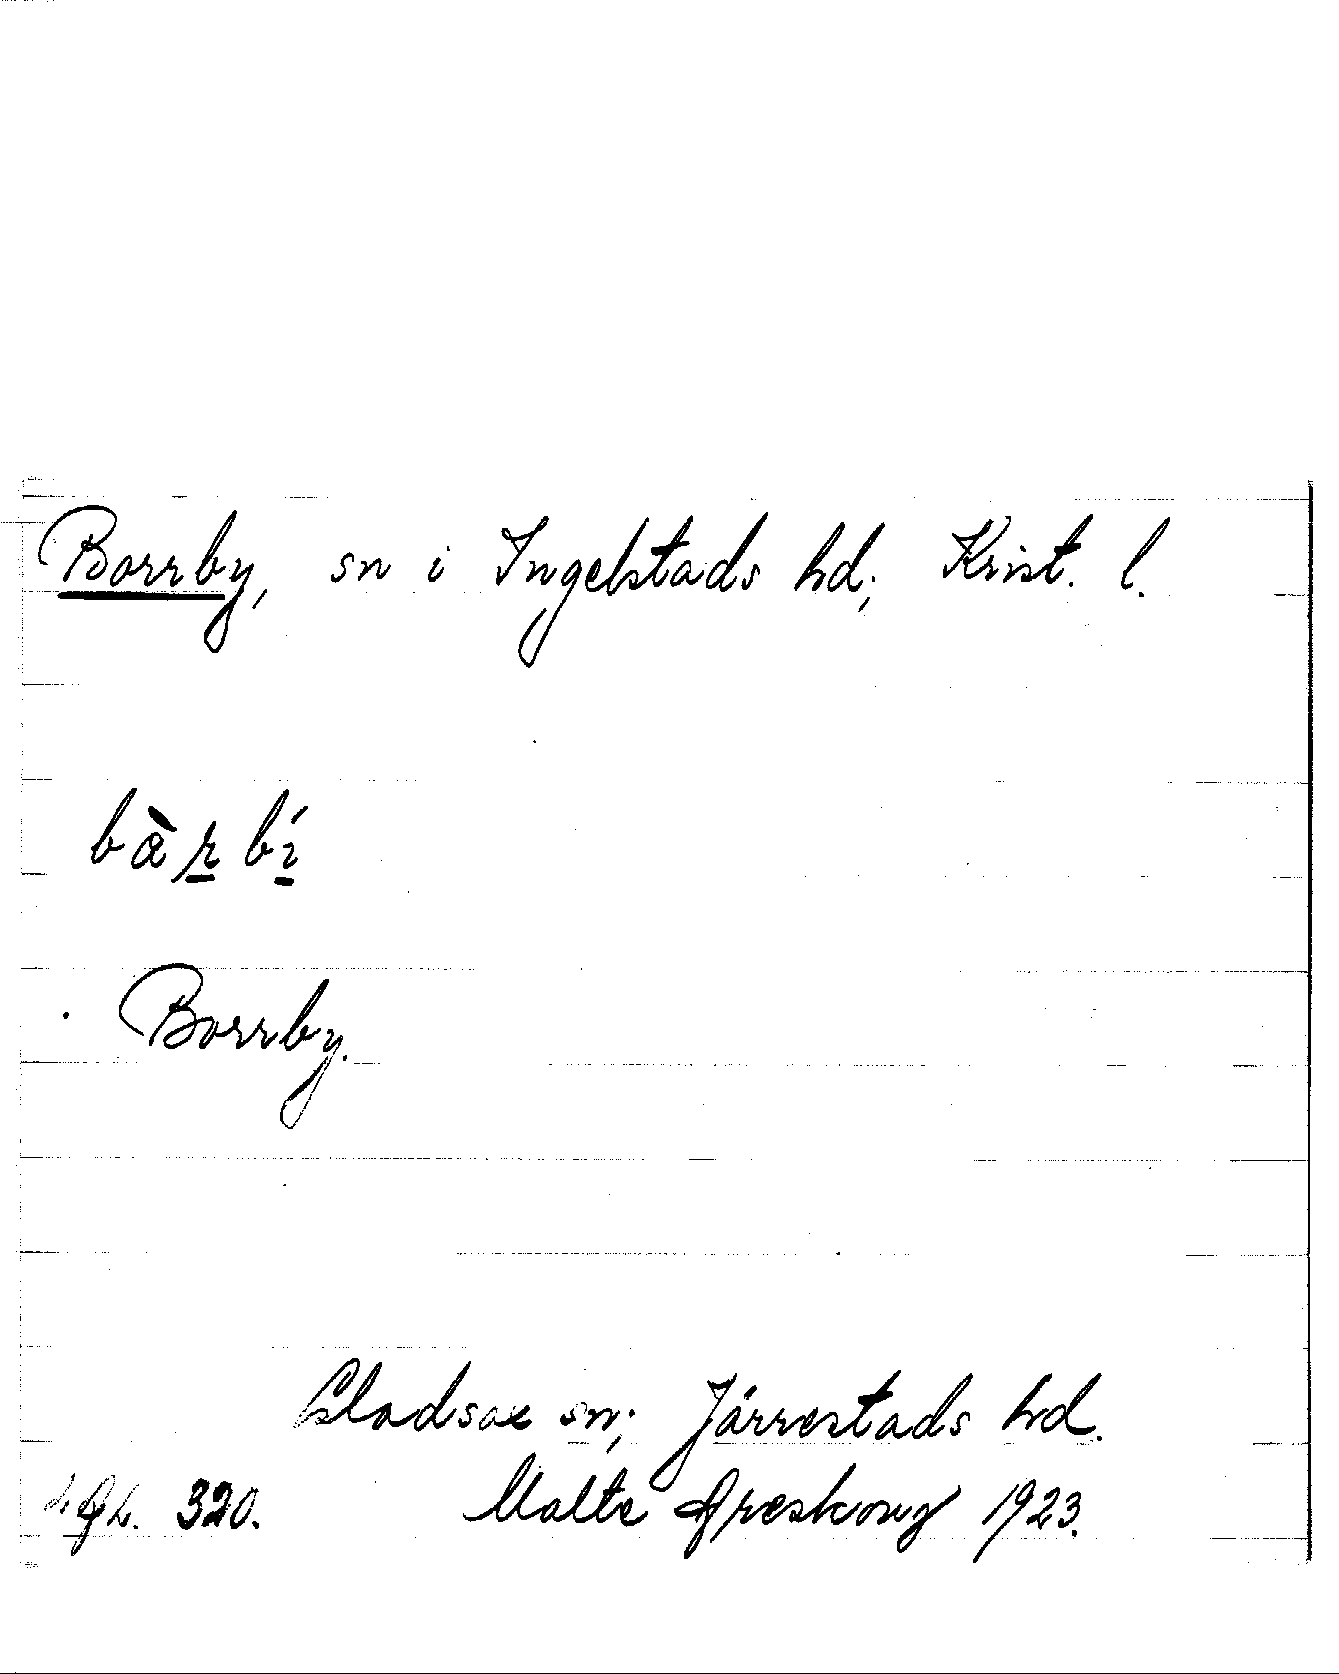 Borrby, sn i Ingelstads hd; Krist. l.
bàr bí
Borrby.
Gladsax sn; Järrestads hd.
320. Malte Areskoug 1923.